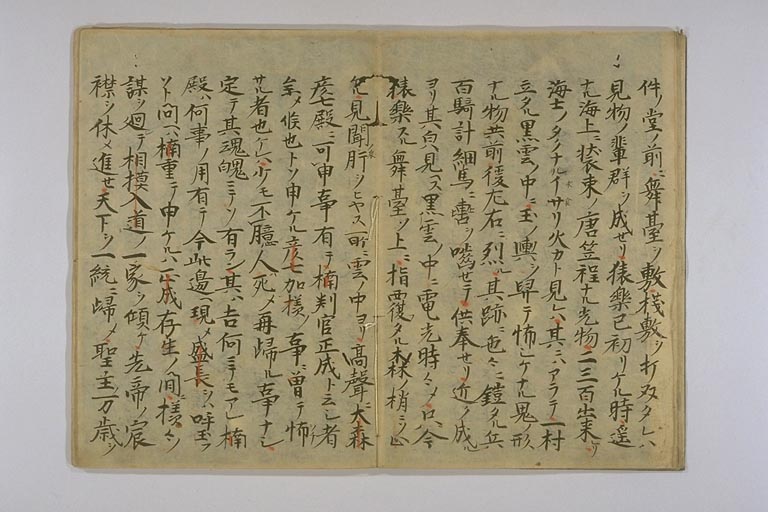 件ノ堂ノ前ニ舞䑓ヲ敷桟敷ヲ打双タレハ
見物ノ輩群ヲ成セリ猿樂已初リケル時遥
ナル海上ニ装束ノ唐笠程ナル光物二三百出来リ
海士ノタク イサリ火カト見レハ其ニハアラテ一村
立タル黒雲ノ中ニ玉ノ輿ヲ舁テ怖シケナル鬼形
ナル物共前後左右ニ烈ル其跡ニ色々ニ鎧タル兵
百騎計細馬ニ轡ヲ噛セテ供奉セリ近ク成
ヨリ其白見ヘス黒雲ノ中ニ電光時々メ只今
猿樂スル舞䑓ノ上ニ指覆タル森ノ梢ニソ
見聞肝ヲヒヤス所ニ雲中ヨリ高聲ニ大森
彦七殿ニ可申事有テ楠判官正成ト云シ者
参メ候也トソ申ケル彦七加様ノ事ニ曽テ怖
サル者也ケレハ少モ不臆人死メ再帰ル事ナシ
定テ其魂魄ニテソ有ラン其ハ吉何ニテモアレ楠
殿ハ何事ノ用有テ今此邊ヘ現メ盛長ヲハ呼玉フ
ソト問ヘハ楠重テ申ケルハ正成存生ノ間ハ様々ノ
謀ヲ廻テ相摸入道ノ一家ヲ傾ケ先帝ノ宸
襟ヲ休メ進セ天下ヲ一統ニ帰メ聖主ノ万歳ヲ